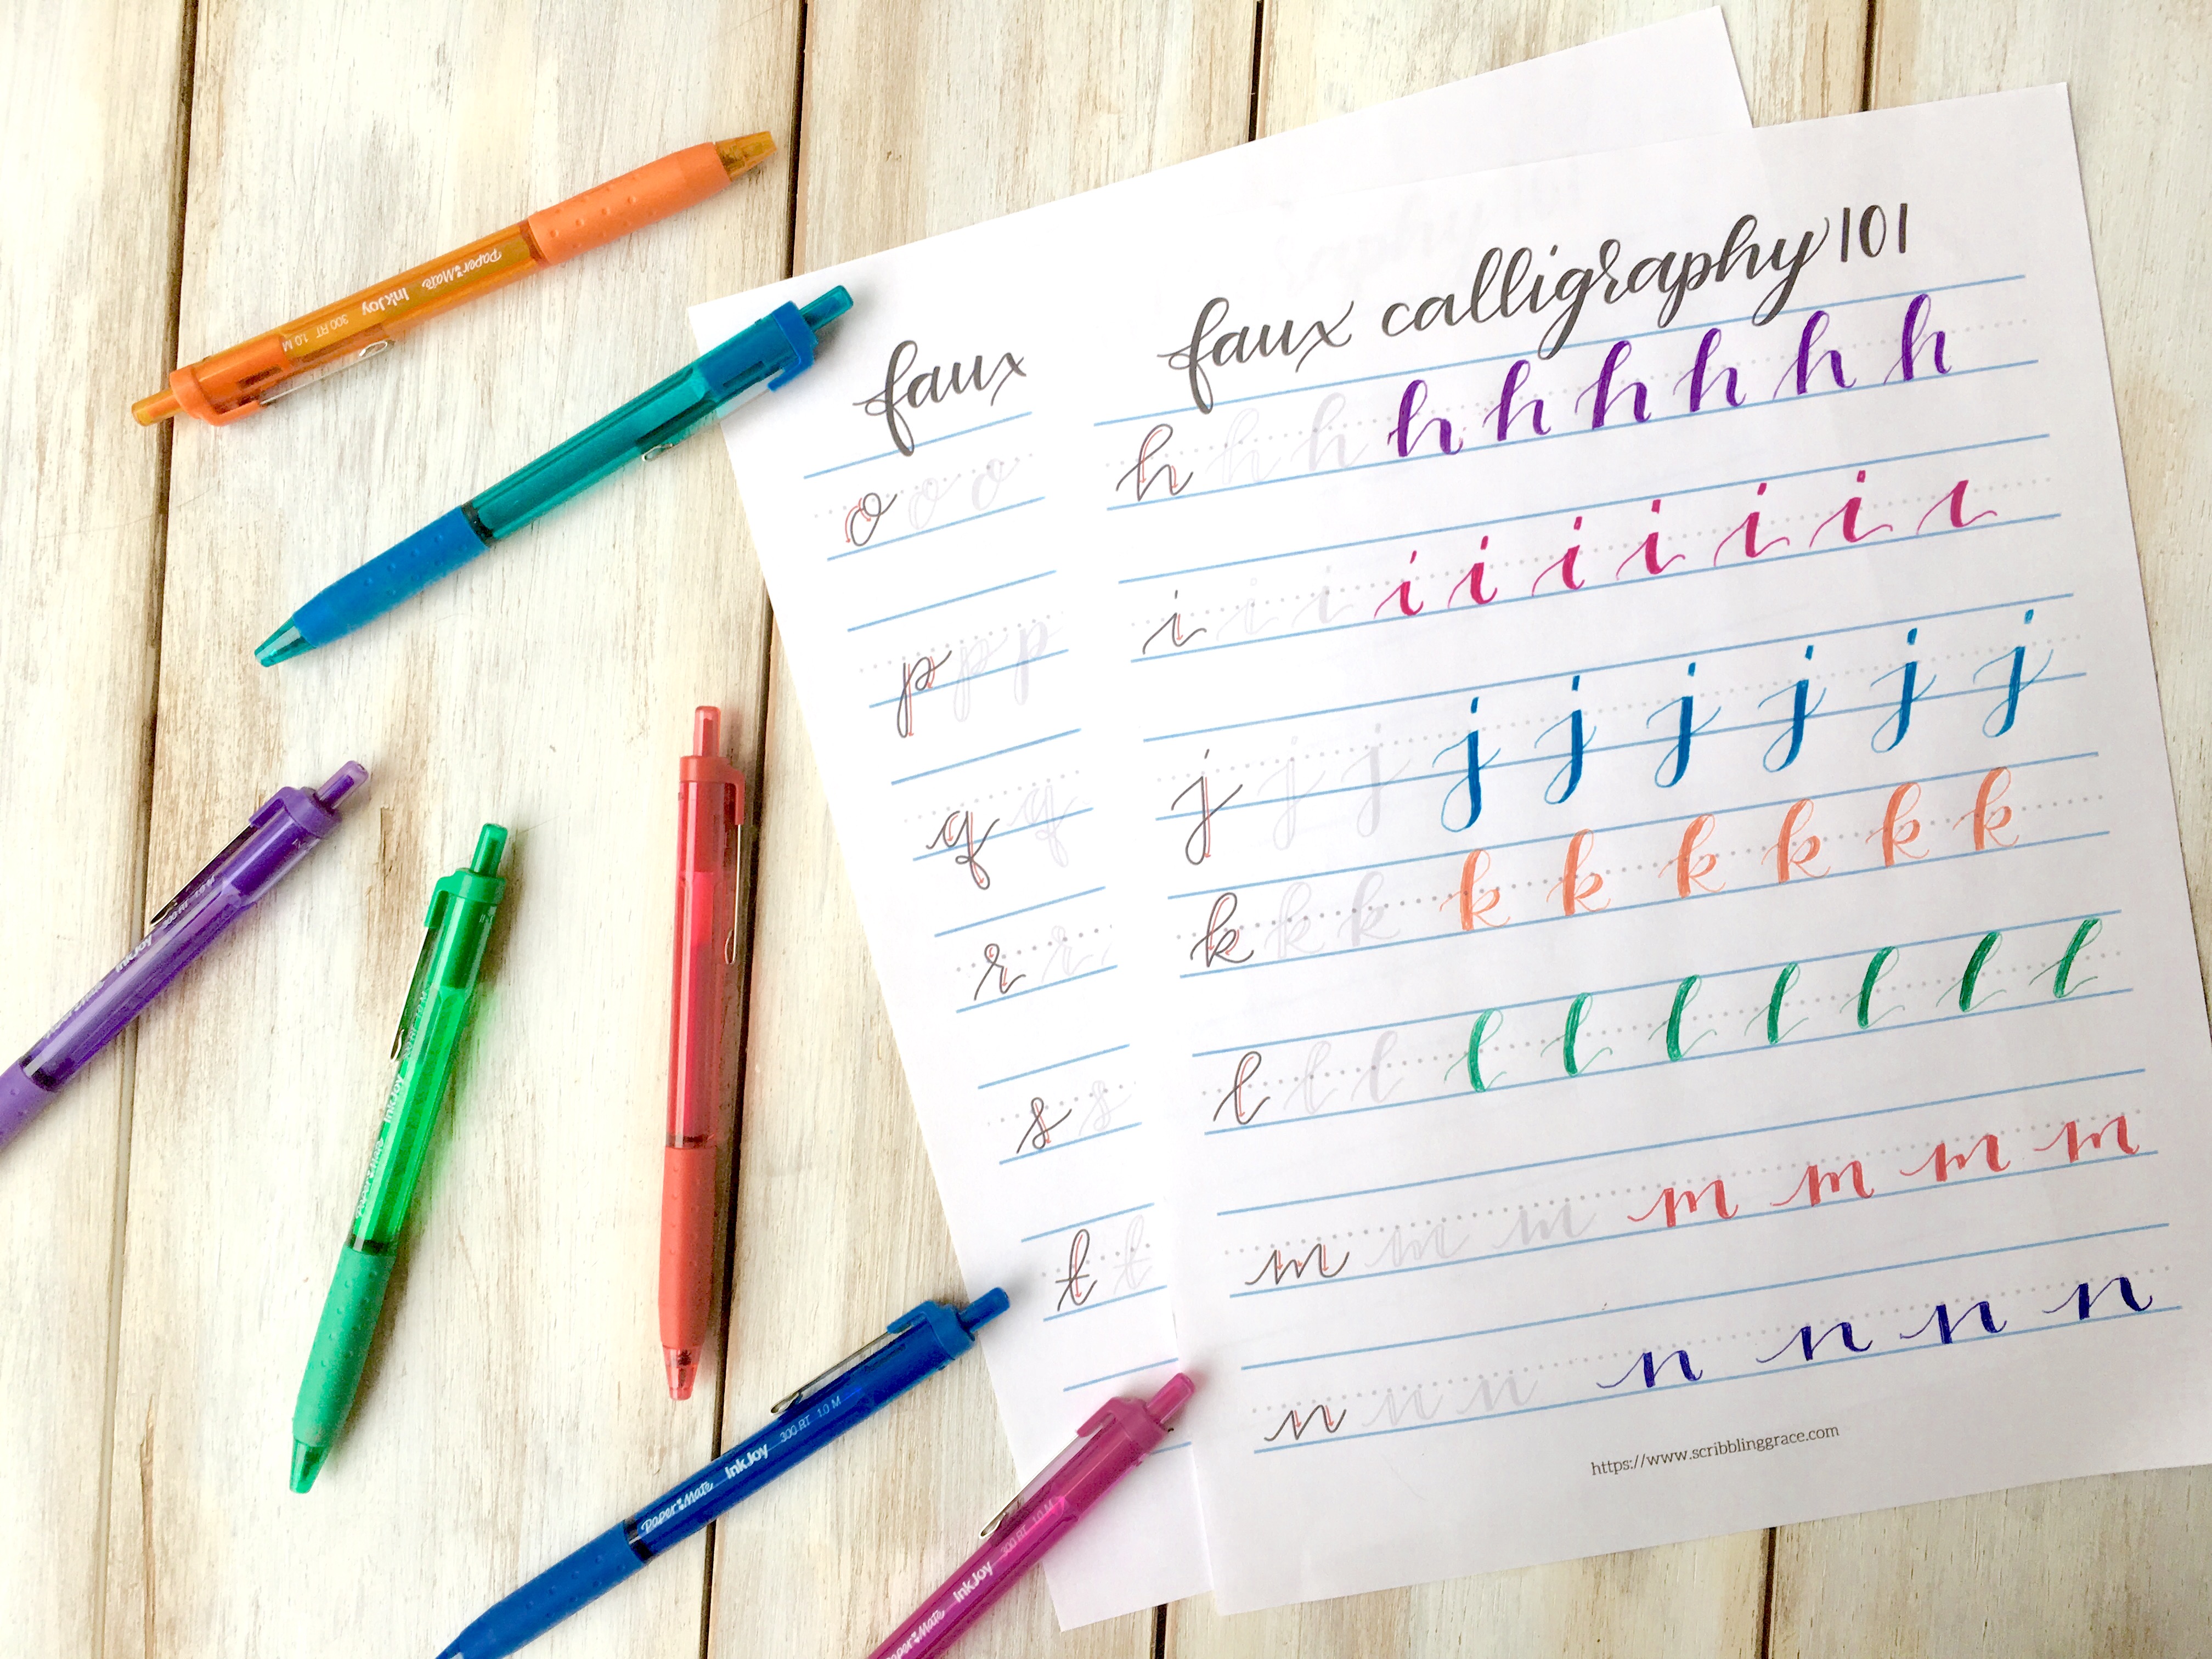 Paper Mate InkJoy 300 RT 1.0 M
faux
o o o
p p p
q q
r r
s s
t t
faux calligraphy 101
h h h h h h h h h
i i i i i i i i i ı
j j j j j j j j j
k k k k k k k k k
l l l l l l l l l l
m m m m m m m
n n n n n n n
https://www.scribblinggrace.com
InkJoy
Paper Mate InkJoy 300 RT 1.0 M
Paper Mate InkJoy 300 RT 1.0 M
Paper Mate InkJoy 300 RT 1.0 M